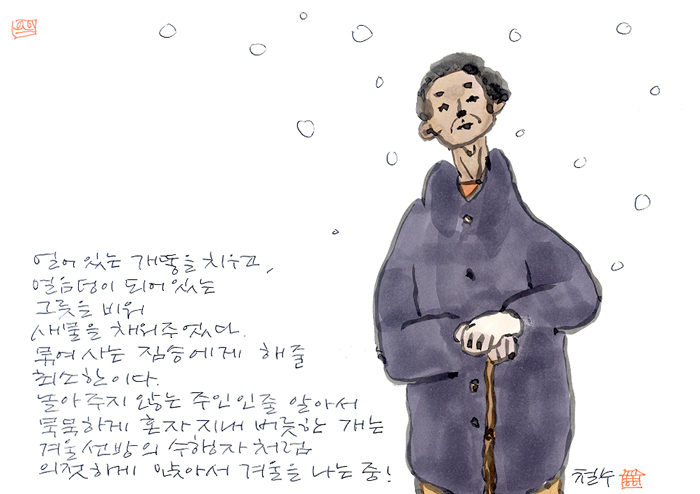 얼어 있는 개똥을 치우고,
얼음덩이 되어 있는
그릇을 비워
새물을 채워주었다.
묶여 사는 짐승에게 해줄
최소한이다.
놀아주지 않는 주인인줄 알아서
묵묵하게 혼자 지내 버릇한 개는
겨울 선방의 수행자처럼
의젓하게 앉아서 겨울을 나는 중!
철수